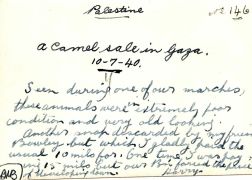 Palestine
No 146
A camel sale in Gaza.
10-7-40.
Seen during one of our marches,
these animals were extremely poor
condition and very old looking.
Another snap discarded by my friend
Bowley but which I gladly paid the
usual 10 mils for. One time I was paying
15 mils but our
developing down. Harry.